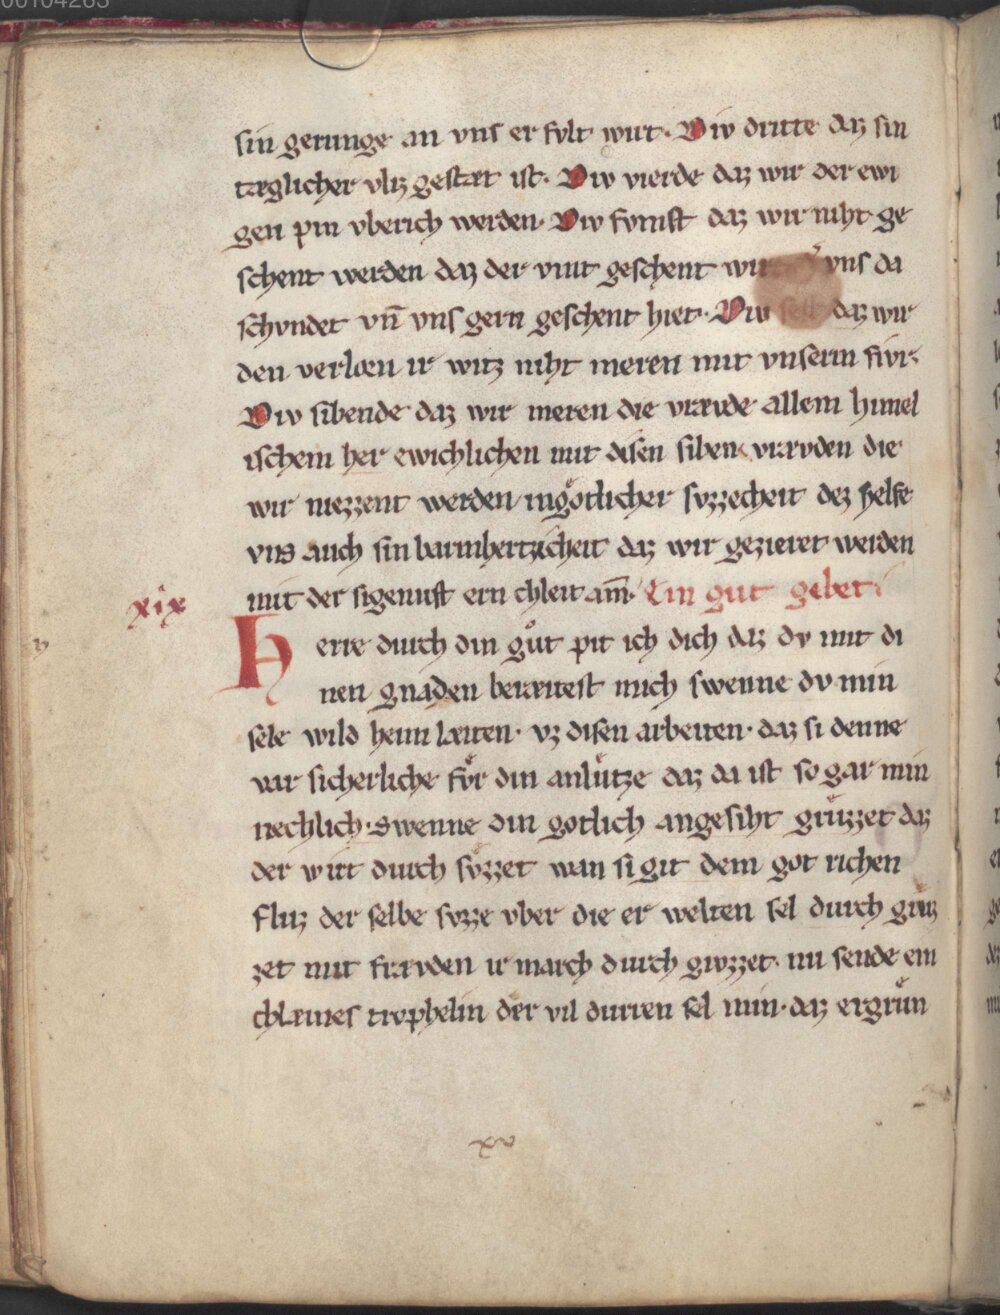 00104263
sin gerunge an vns er fvlt wirt· Div dritte daz sin
tæglicher vliz gestæt ist· Div vierde daz wir der ewi
gen pin vberich werden· Div fvnift daz wir niht ge
schent werden daz der vint geschent wirt vns da
schvndet vn̄ vns gern geschent hiet· Div sest daz wir
den verlorn ir witz niht meren mit vnserm fivr·
Div sibende daz wir meren die vrævde allem himel
ischem her ewichlichen mit disen siben vrævden die
wir niezzent werden in gotlicher svzzecheit dez helfe
vns auch sin barmhertzicheit daz wir gezieret werden
mit der sigenuft ern chleit am̄· Ein gut gebet·
xix
Herre durch din guͦt pit ich dich daz dv mit di
nen gnaden beræitest mich swenne dv min
sele wild heim læiten· vz disen arbeiten· daz si denne
var sicherliche fvͤr din anlvͤtze daz da ist so gar min
nechlich· Swenne din gotlich angesiht gruͤzzet daz
der wirt durch svͤzzet wan si git dem got richen
fluz der selbe svzze vber die er welten sel durch giuz
zet mit frævden ir march durch giuzzet· nu sende ein
chlæines trophelin der vil durren sel min· daz ergruͤn
xv